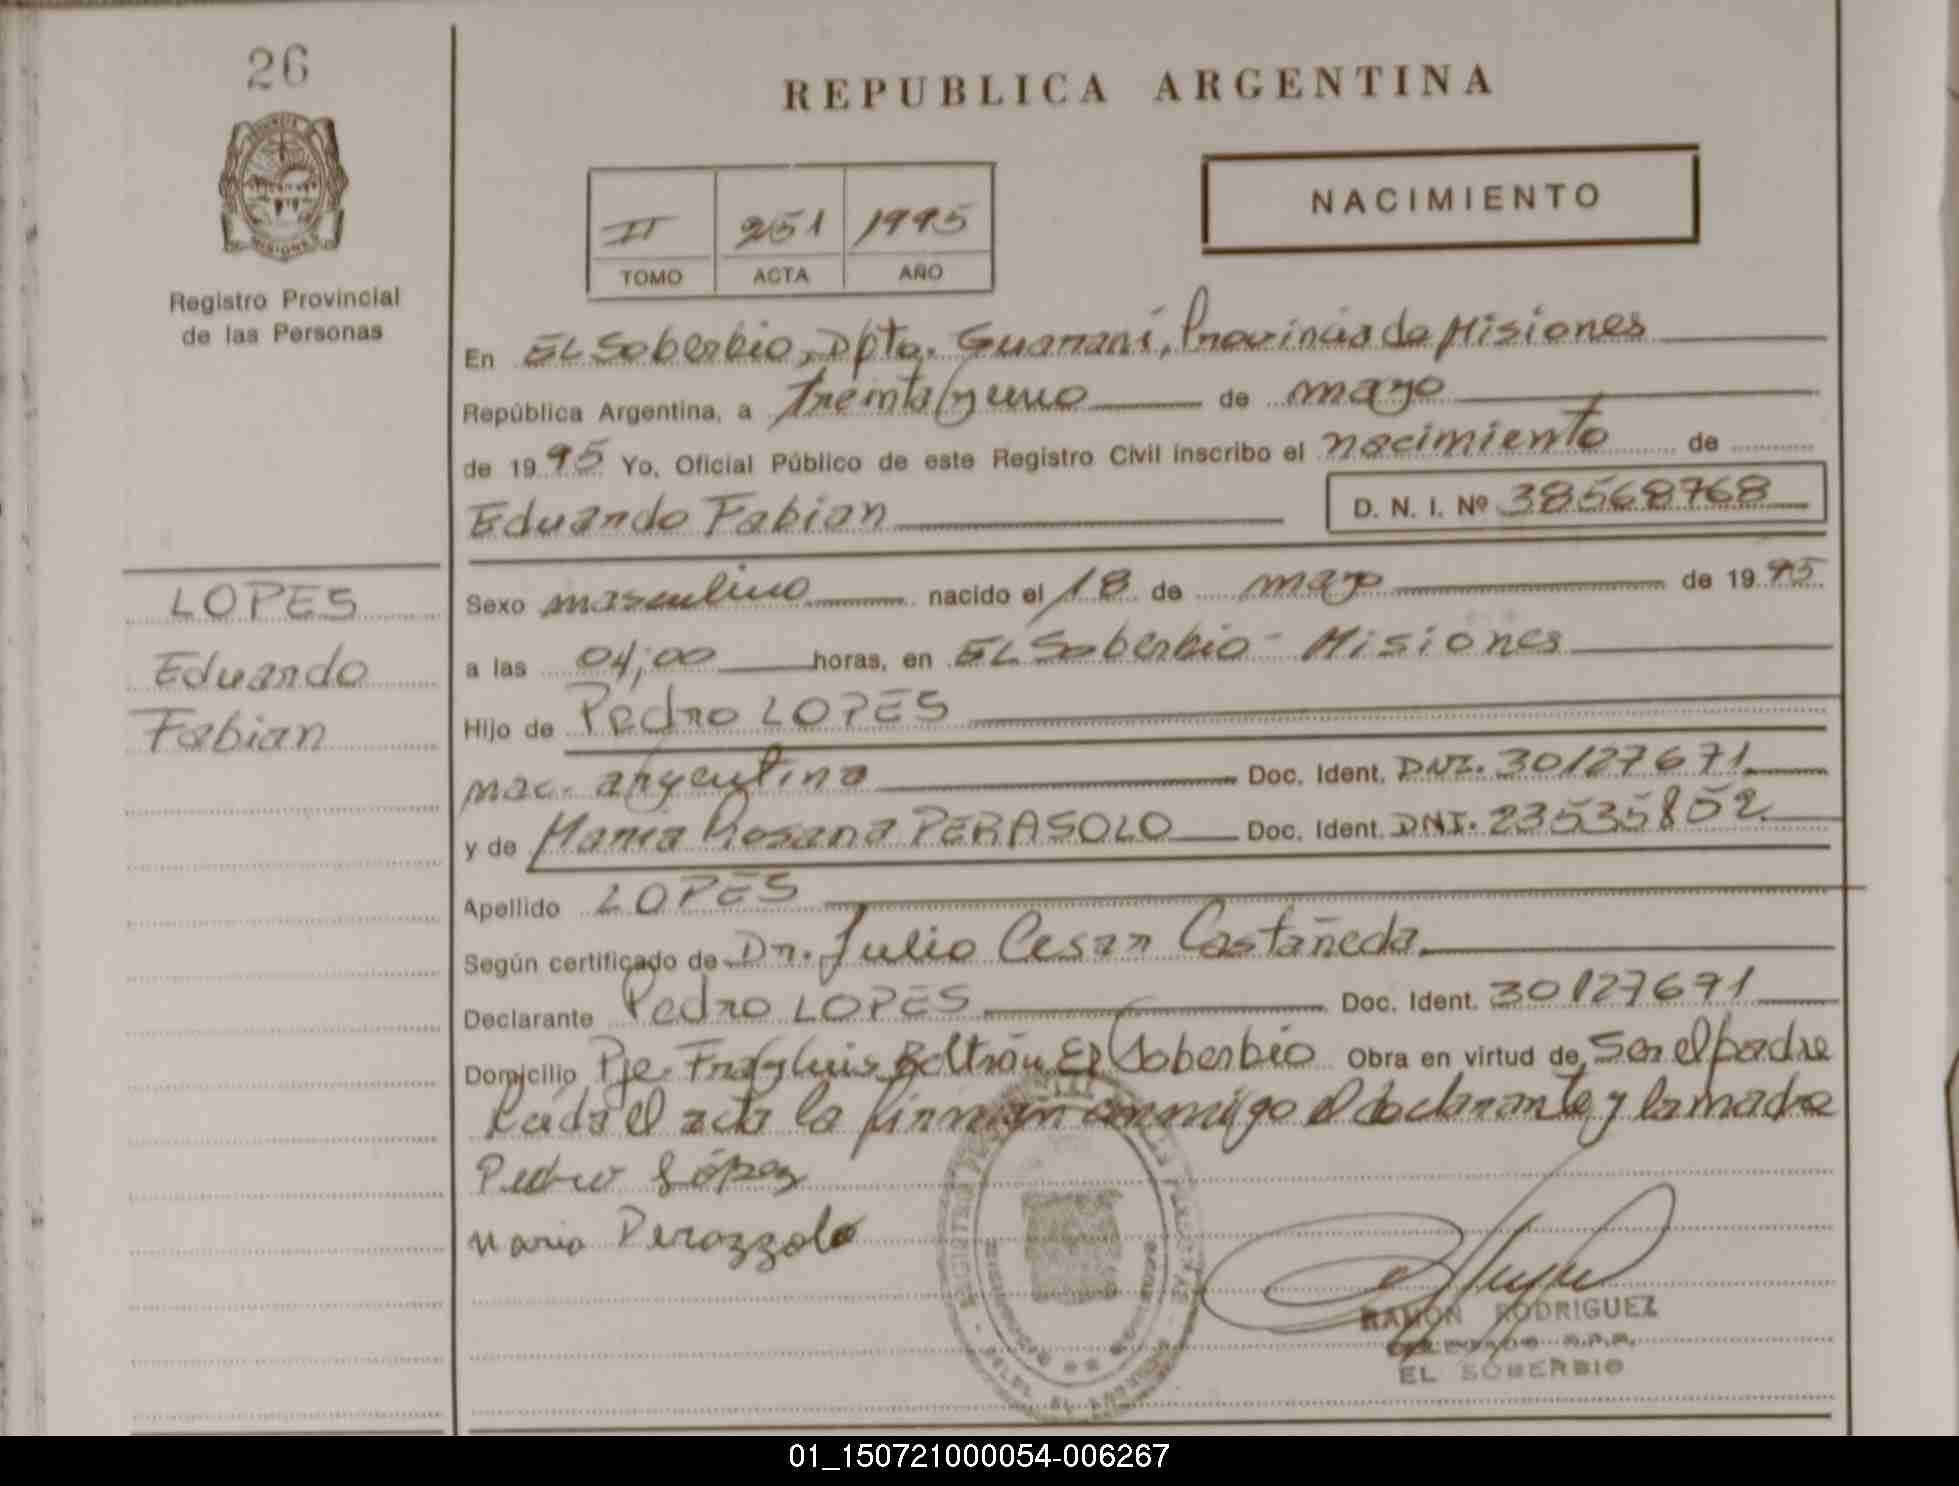 26
MISIONES
Registro Provincial
de las Personas
LOPES
Eduardo
Fabian
REPUBLICA ARGENTINA
II 251 1995
TOMO ACTA AÑO
NACIMIENTO
En EL Soberbio, Dpto. Guaraní, Provincia de Misiones
República Argentina, a treinta y uno de mayo
de 1995 Yo, Oficial Público de este Registro Civil inscribo el nacimiento de
Eduardo Fabian D. N. I. Nº 38568768
Sexo masculino nacido el 18 de mayo de 1995
a las 04,00 horas, en EL Soberbio - Misiones
Hijo de Pedro LOPES
nac. argentina Doc. Ident. DNI. 30127671
y de Maria Rosana PERASOLO Doc. Ident. DNI. 23535852
Apellido LOPES
Según certificado de Dr. Julio Cesar Castañeda
Declarante Pedro LOPES Doc. Ident. 30127671
Domicilio Pje. Fray Luis Beltrán El Soberbio Obra en virtud de Ser el padre
Leida el acta la firman conmigo el declarante y la madre
Pedro López
Maria Perazzolo
RAMON RODRIGUEZ
DELEGADO R.P.P.
EL SOBERBIO
01_150721000054-006267